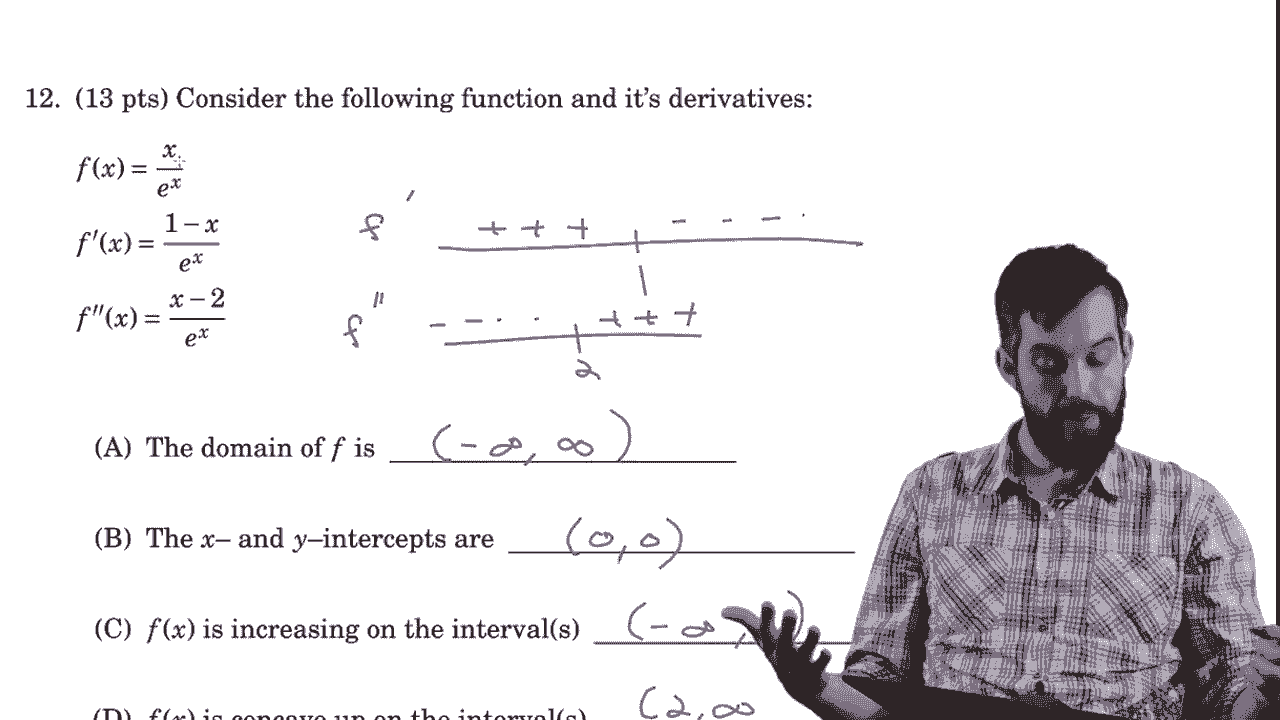 12. (13 pts) Consider the following function and it's derivatives:
f(x) = x/e^x
f'(x) = (1 − x)/e^x
f''(x) = (x − 2)/e^x
f' + + + - - -
1
f'' - - - - + + +
2
(A) The domain of f is (-∞, ∞)
(B) The x– and y–intercepts are (0,0)
(C) f(x) is increasing on the interval(s) (-∞, )
(D) f(x) is concave up on the interval(s) (2,∞